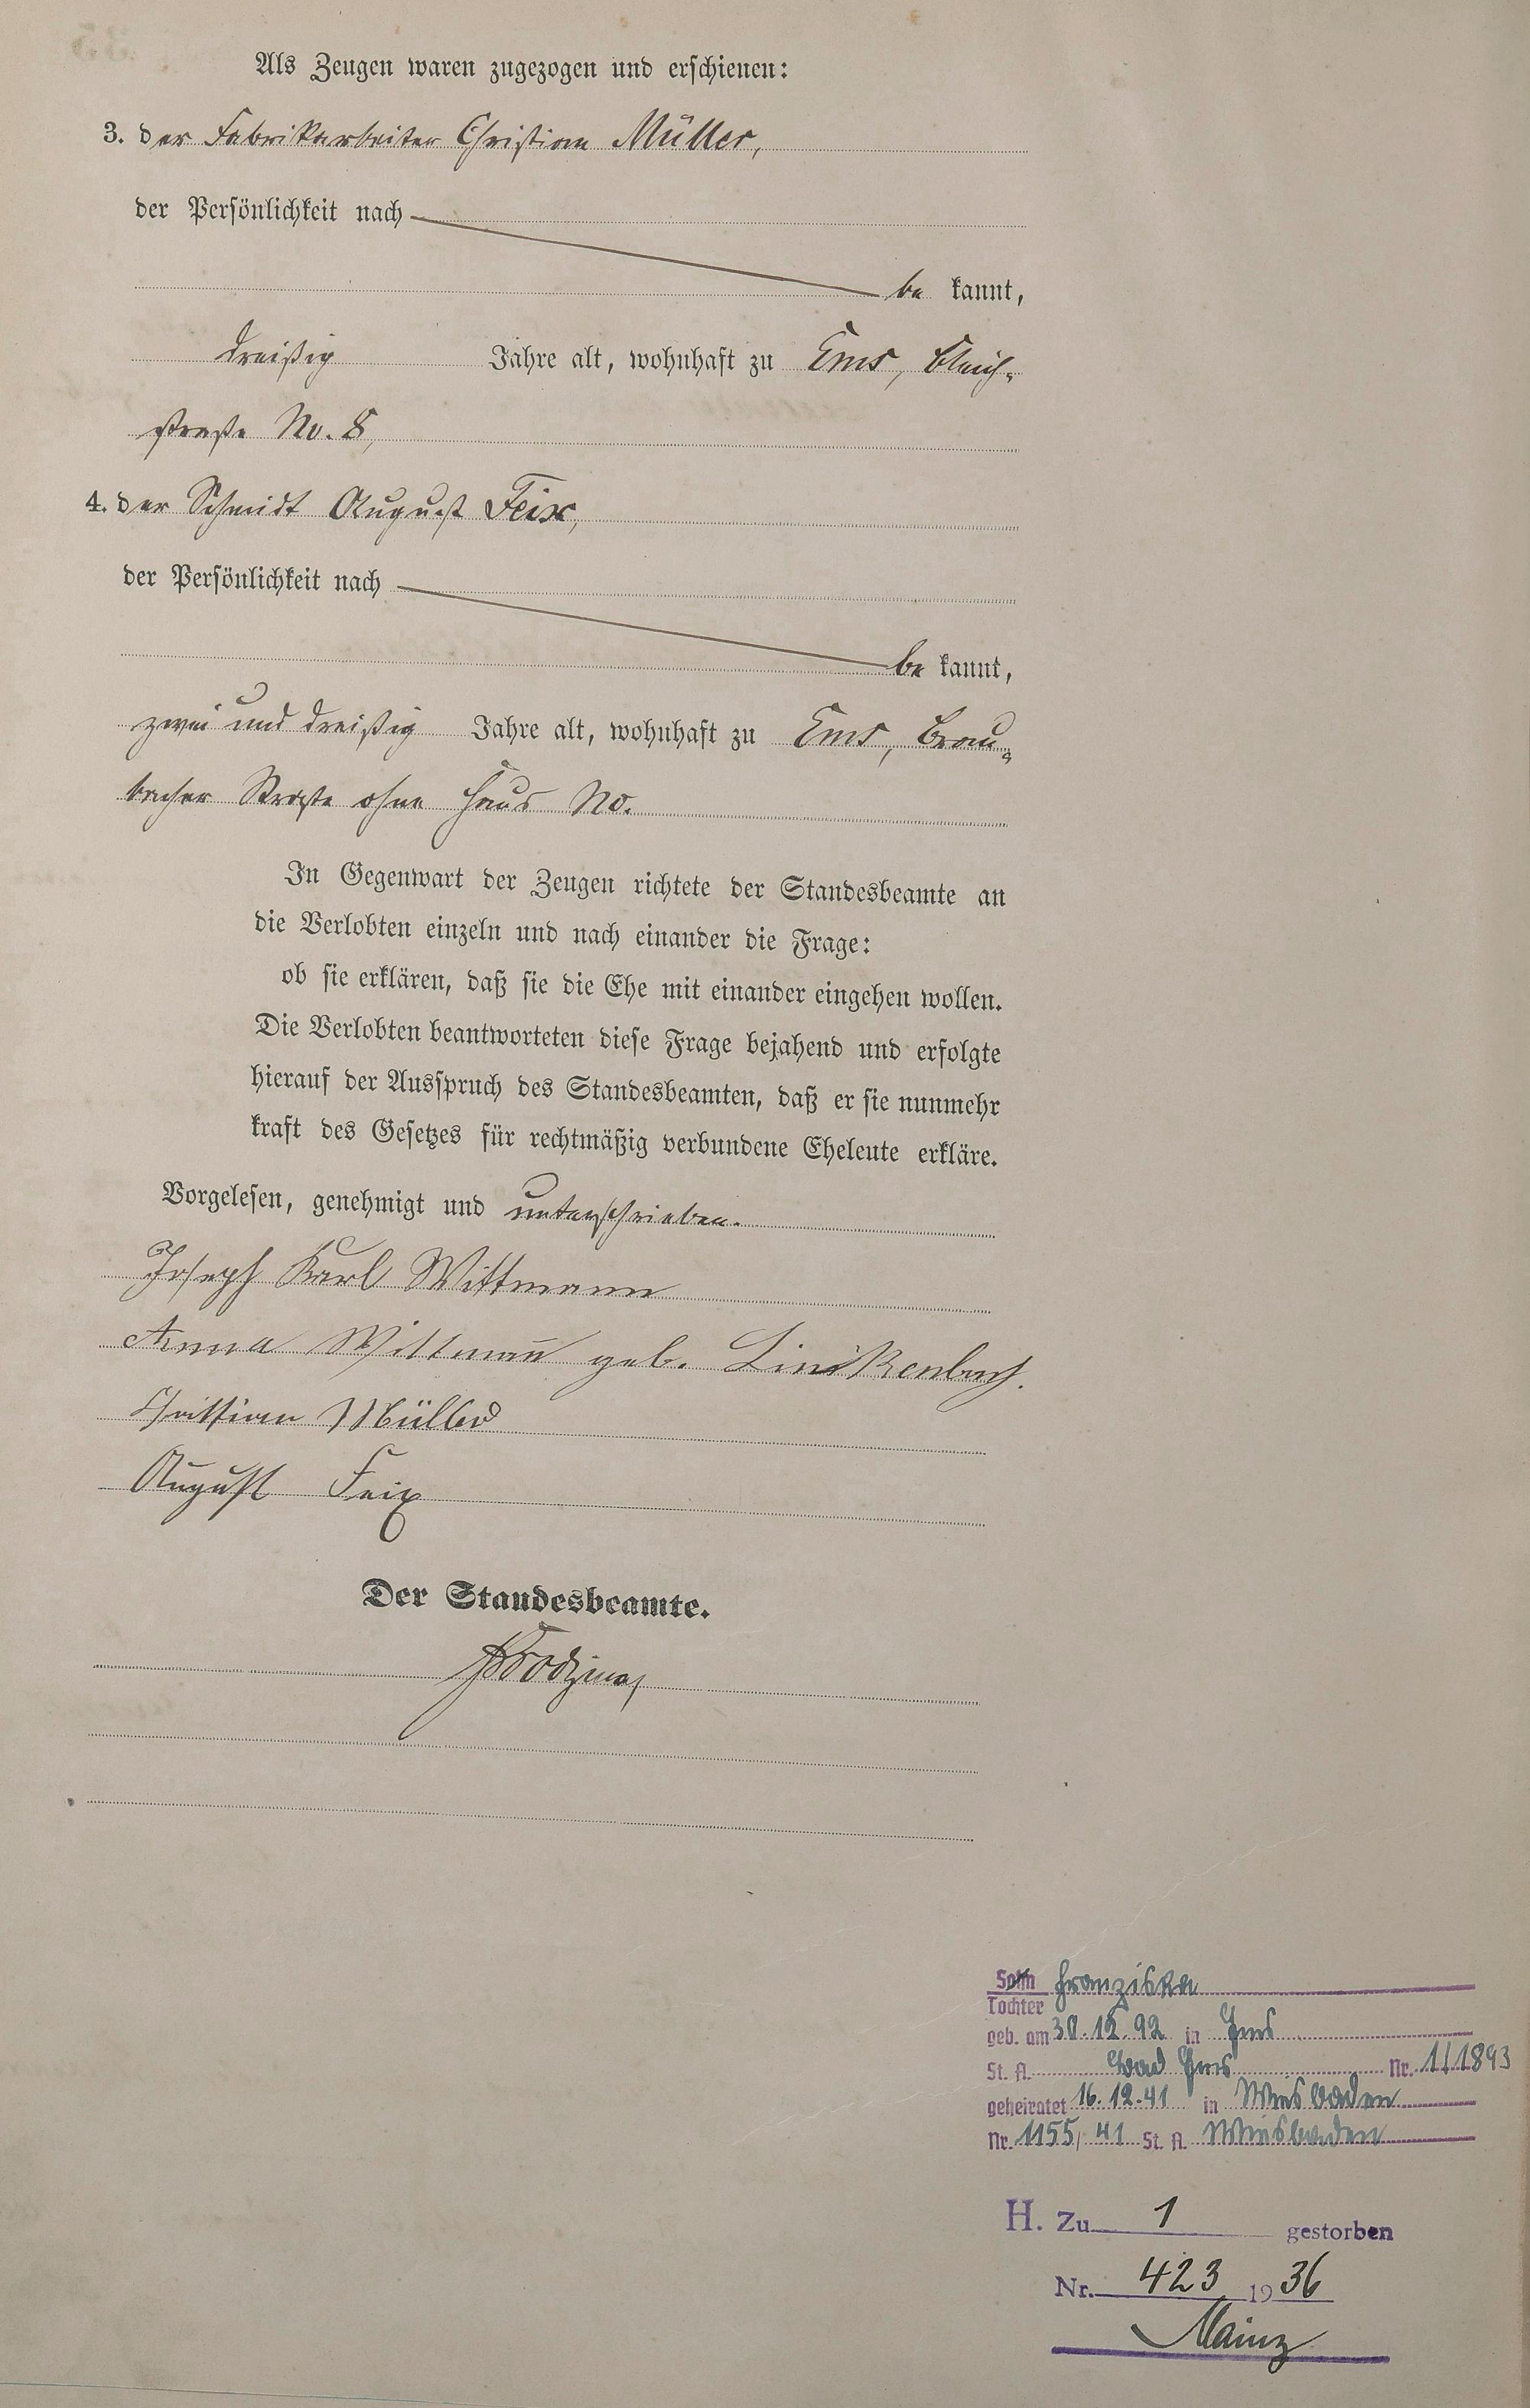 Als Zeugen waren zugezogen und erschienen:
3. der Fabrikarbeiter Christian Müller,
der Persönlichkeit nach
be kannt,
dreißig Jahre alt, wohnhaft zu Ems, Bleich-
straße No. 8,
4. der Schmidt August Feix,
der Persönlichkeit nach
be kannt,
zwei und dreißig Jahre alt, wohnhaft zu Ems, Brau-
bacher Straße ohne Haus No.
In Gegenwart der Zeugen richtete der Standesbeamte an
die Verlobten einzeln und nach einander die Frage:
ob sie erklären, daß sie die Ehe mit einander eingehen wollen.
Die Verlobten beantworteten diese Frage bejahend und erfolgte
hierauf der Ausspruch des Standesbeamten, daß er sie nunmehr
kraft des Gesetzes für rechtmäßig verbundene Eheleute erkläre.
Vorgelesen, genehmigt und unterschrieben.
Joseph Karl Wittmann
Anna Wittman̄ geb. Linkenbach.
Christian Müller
August Feix
Der Standesbeamte.
Sohn Franziska
Tochter
geb. am 30.12.92 in Ems
St. A. Bad Ems Nr. 1/1893
geheiratet 16.12.41 in Wiesbaden
Nr. 1155/41 St. A. Wiesbaden
H. Zu 1 gestorben
Nr. 423 1936
Mainz